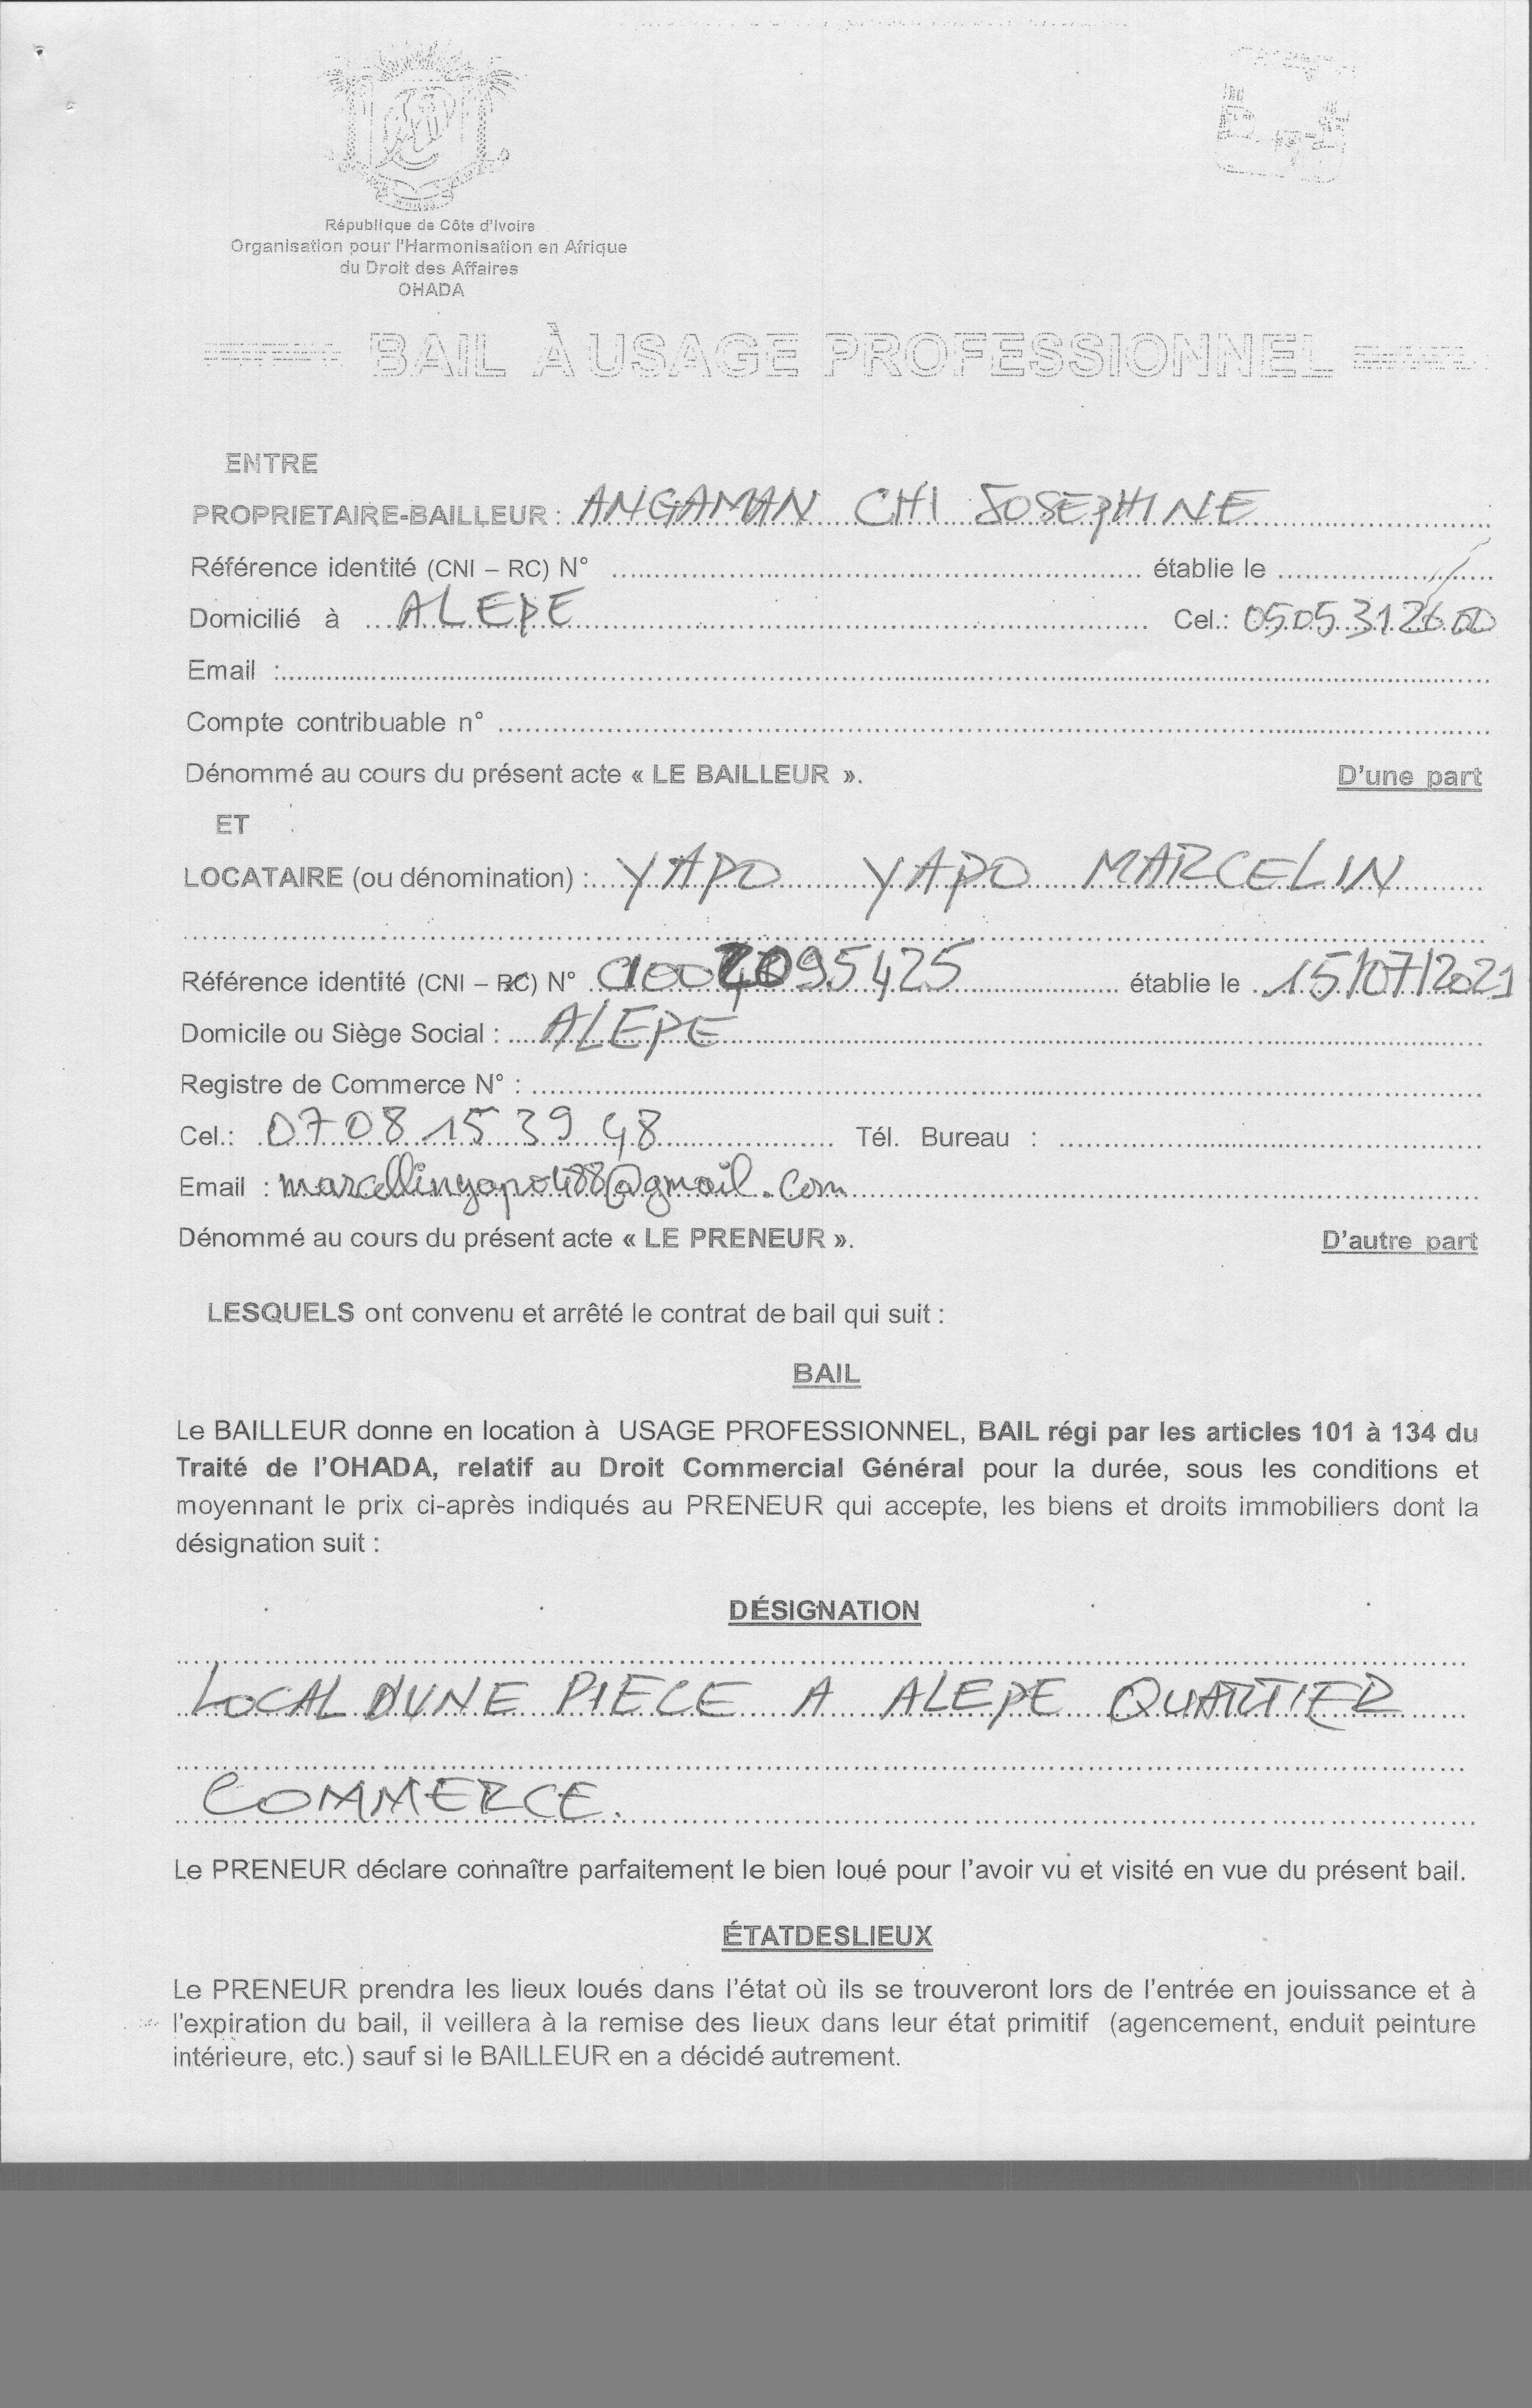 République de Côte d'Ivoire
Organisation pour l'Harmonisation en Afrique
du Droit des Affaires
OHADA
BAIL À USAGE PROFESSIONNEL
ENTRE
PROPRIETAIRE-BAILLEUR : ANGAMAN CHI JOSEPHINE
Référence identité (CNI – RC) N° ........ établie le ........
Domicilié à ALEPE Cel.: 05 05 31 26 00
Email :........
Compte contribuable n° ........
Dénommé au cours du présent acte « LE BAILLEUR ». D'une part
ET
LOCATAIRE (ou dénomination) : YAPO YAPO MARCELIN
Référence identité (CNI – RC) N° établie le 15/07/2021
Domicile ou Siège Social : ALEPE
Registre de Commerce N° : ........
Cel.: 07 08 15 39 48 Tél. Bureau : ........
Email :
Dénommé au cours du présent acte « LE PRENEUR ». D'autre part
LESQUELS ont convenu et arrêté le contrat de bail qui suit :
BAIL
Le BAILLEUR donne en location à USAGE PROFESSIONNEL, BAIL régi par les articles 101 à 134 du
Traité de l'OHADA, relatif au Droit Commercial Général pour la durée, sous les conditions et
moyennant le prix ci-après indiqués au PRENEUR qui accepte, les biens et droits immobiliers dont la
désignation suit :
DÉSIGNATION
LOCAL D'UNE PIECE A ALEPE QUARTIER
COMMERCE.
Le PRENEUR déclare connaître parfaitement le bien loué pour l'avoir vu et visité en vue du présent bail.
ÉTATDESLIEUX
Le PRENEUR prendra les lieux loués dans l'état où ils se trouveront lors de l'entrée en jouissance et à
l'expiration du bail, il veillera à la remise des lieux dans leur état primitif (agencement, enduit peinture
intérieure, etc.) sauf si le BAILLEUR en a décidé autrement.